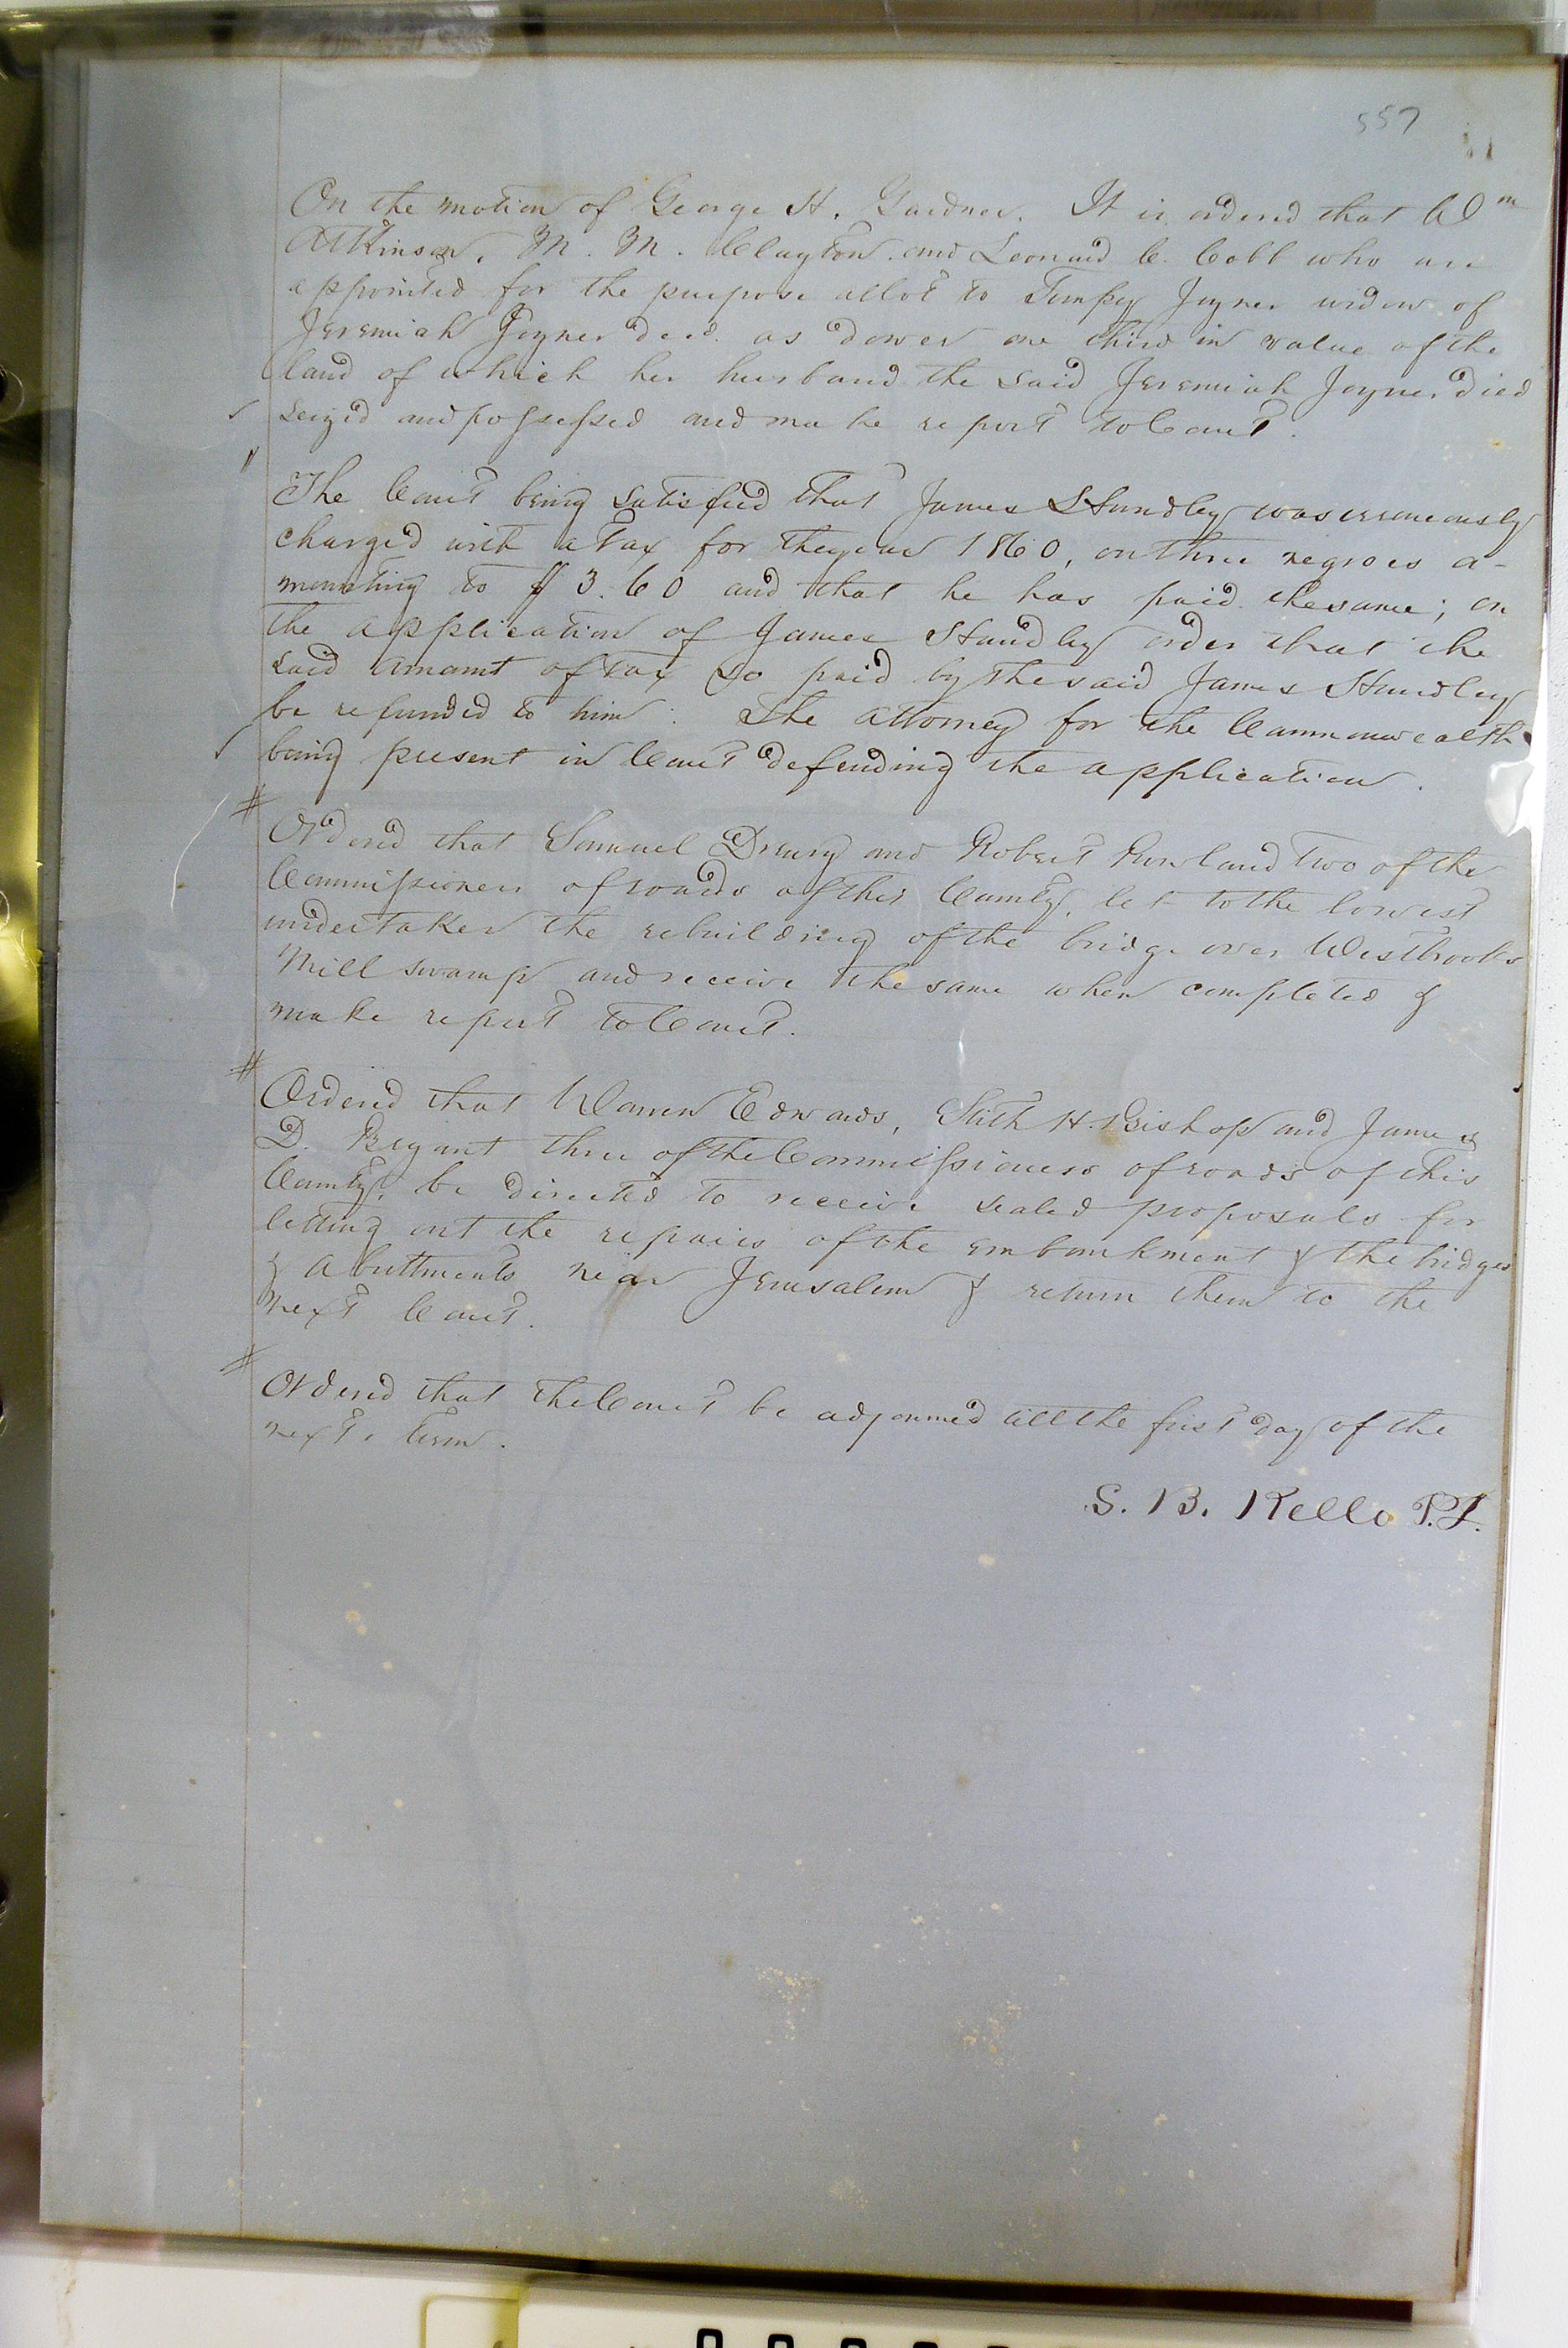 557
On the motion of George H. Gardner. It is ordered that Wm
Atkinson, M. M. Clayton and Leonard C. Cobb who are
appointed for the purpose allot to Tempy Joyner widow of
Jeremiah Joyner decd. as dower one third in value of the
land of which her husband the said Jeremiah Joyner died
seized and possessed and make report to Court.
The Court being satisfied that James S Hundley was erroneously
charged with a Tax for the year 1860, on three negroes a-
mounting to $ 3.60 and that he has paid the same; on
the application of James Hundley order that the
said amount of Tax so paid by the said James Hundley
be refunded to him: The Attorney for the Commonwealth
being present in Court defending the application.
# Ordered that Samuel Drewry and Robert Rowland two of the
Commissioners of roads of this County, let to the lowest
undertaker the rebuilding of the bridge over Westbrooks
Mill swamp and receive the same when completed &
make report to Court.
# Ordered that Warren Edwards, Stith H. Bishop and James
D. Bryant three of the Commissioners of roads of this
County, be directed to receive sealed proposals for
letting out the repairs of the embankment & the bridges
& Abuttments near Jerusalem & return them to the
next Court.
# Ordered that the Court be adjourned till the first day of the
next term.
S. B. Kello P.J.